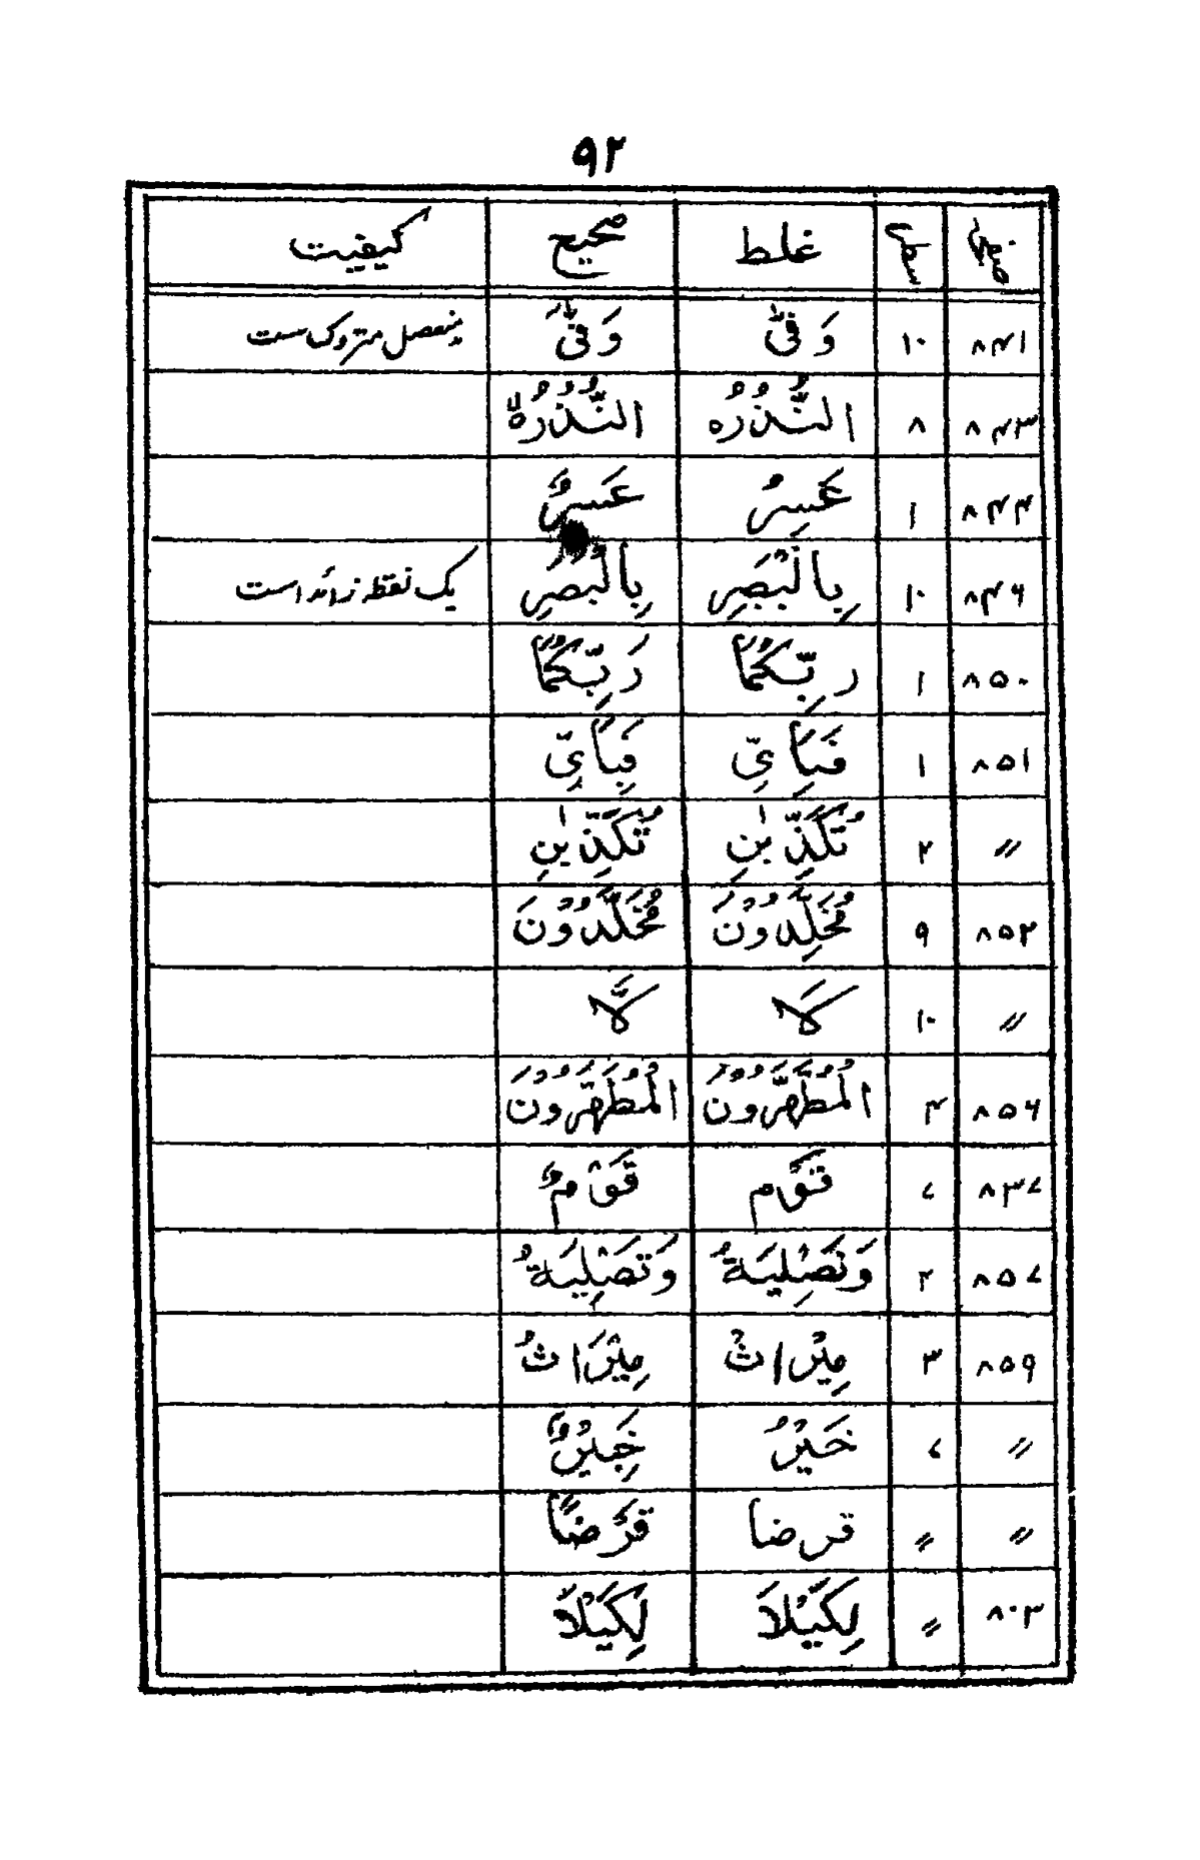 ۹۲
صفحہ سطر غلط صحیح کیفیت
۸۴۱ ۱۰ وَفِیْ وَفِیْۤ
۸۴۳ ۸ النُّذُرُہ النُّذُرُہ
۸۴۴ ۱ عَسِرٌ عَسِرٌ
۸۴۶ ۱۰ بِالْبَبَصِرِ بِالْبَصَرِ یک نقطہ زائد است
۸۵۰ ۱ رِبِّکُمَا رَبِّکُمَا
۸۵۱ ۱ فَبِاَیِّ فَبِاَیِّ
〃 ۲ تُکَذِّبٰنِ تُکَذِّبٰنِ
۸۵۲ ۹ مُخَلِّدُوْنَ مُخَلَّدُوْنَ
〃 ۱۰ لَا لَّا
۸۵۶ ۴ الْمُطَهَّرُوْنَ الْمُطَهَّرُوْنَ
۸۳۷ ۷ قَوْم قَوْمٌ
۸۵۷ ۲ وَتَصْلِیَةُ وَتَصْلِیَةُ
۸۵۹ ۳ مِیْرَاثُ مِیْرَاثُ
〃 ۷ خَیْرٌ خَبِیْرٌ
〃 〃 قرضا قَرْضًا
۸۰۳ 〃 لِکَیْلَا لِکَیْلَا